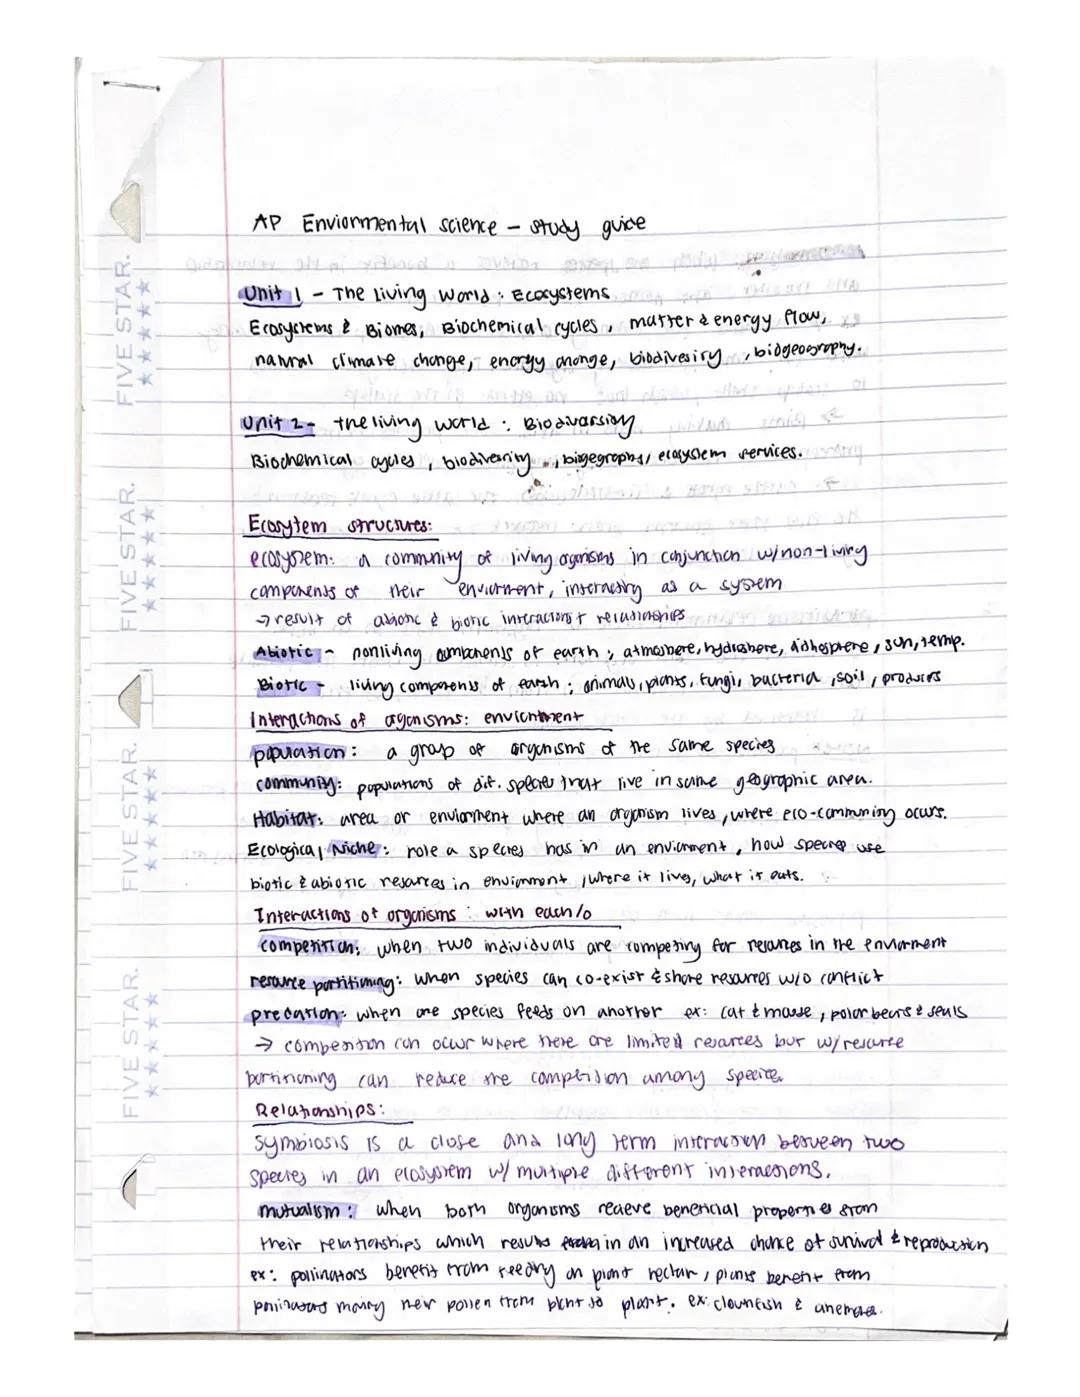 AP Enviormental science - study guide
Unit 1 - The Living World : Ecosystems
Ecosystems & Biomes, Biochemical cycles, matter & energy flow,
natural climate change, energy change, biodivesiry, biogeography.
Unit 2 - the living world : Biodiversity
Biochemical cycles, biodiversity, biogegraphy, ecosystem services.
Ecosytem structures:
ecosystem: a community of living oganisms in conjunction w/non-living
components of their enviorment, interacting as a system
→ result of abiotic & biotic interactions + relationships
Abiotic - nonliving components of earth ; atmosphere, hydrosphere, lithosphere, sun, temp.
Biotic - living components of earth ; animals, plants, fungi, bacteria, soil, producers
Interactions of organisms: enviornment
population: a group of organisms of the same species
community: populations of dif. species that live in same geographic area.
Habitat: area or enviorment where an organism lives, where eco-community occurs.
Ecological Niche: role a species has in an enviorment, how species use
biotic & abiotic resources in enviornment, where it lives, what it eats.
Interactions of organisms: with each/o
competition: when two individuals are competing for resources in the enviorment
resource partitioning: when species can co-exist & share resources w/o conflict
predation: when one species feeds on another ex: cat & mouse, polar bears & seals
→ competition can occur where there are limited resources but w/resource
partitioning can reduce the competision among species.
Relationships:
symbiosis is a close and long term interaction between two
species in an ecosystem w/ multiple different interactions.
mutualism: when both organisms recieve beneficial properties from
their relationships which results in an increased chance of survival & reproduction
ex: pollinators benefit from feeding on plant nectar, plants benefit from
pollinators moving their pollen from plant to plant. ex: clownfish &
FIVE STAR.
FIVE STAR.
FIVE STAR.
FIVE STAR.